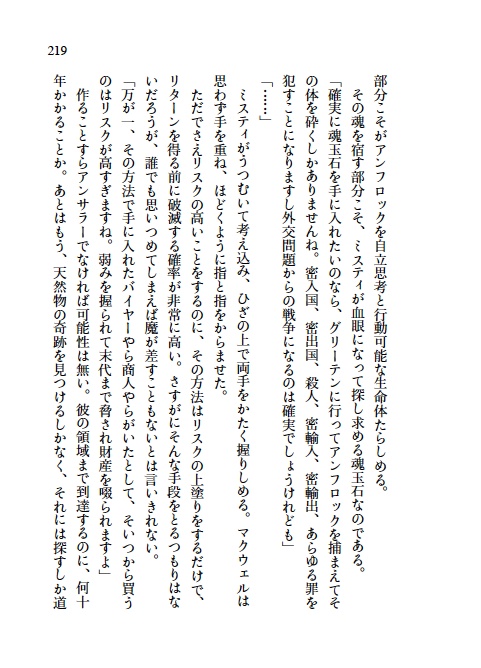 219
部分こそがアンフロックを自立思考と行動可能な生命体たらしめる。
その魂を宿す部分こそ、ミスティが血眼になって探し求める魂玉石なのである。
「確実に魂玉石を手に入れたいのなら、グリーテンに行ってアンフロックを捕まえてそ
の体を砕くしかありませんね。密入国、密出国、殺人、密輸入、密輸出、あらゆる罪を
犯すことになりますし外交問題からの戦争になるのは確実でしょうけれども」
「……」
ミスティがうつむいて考え込み、ひざの上で両手をかたく握りしめる。マクウェルは
思わず手を重ね、ほどくように指と指をからませた。
ただでさえリスクの高いことをするのに、その方法はリスクの上塗りをするだけで、
リターンを得る前に破滅する確率が非常に高い。さすがにそんな手段をとるつもりはな
いだろうが、誰でも思いつめてしまえば魔が差すこともないとは言いきれない。
「万が一、その方法で手に入れたバイヤーやら商人やらがいたとして、そいつから買う
のはリスクが高すぎますね。弱みを握られて末代まで脅され財産を啜られますよ」
作ることすらアンサラーでなければ可能性は無い。彼の領域まで到達するのに、何十
年かかることか。あとはもう、天然物の奇跡を見つけるしかなく、それには探すしか道